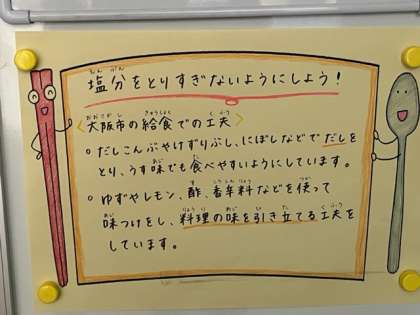 塩分をとりすぎないようにしよう!
<大阪市の給食での工夫>
○だしこんぶやけずりぶし、にぼしなどでだしを
とり、うす味でも食べやすいようにしています。
○ゆずやレモン、酢、香辛料などを使って
味つけをし、料理の味を引き立てる工夫を
しています。